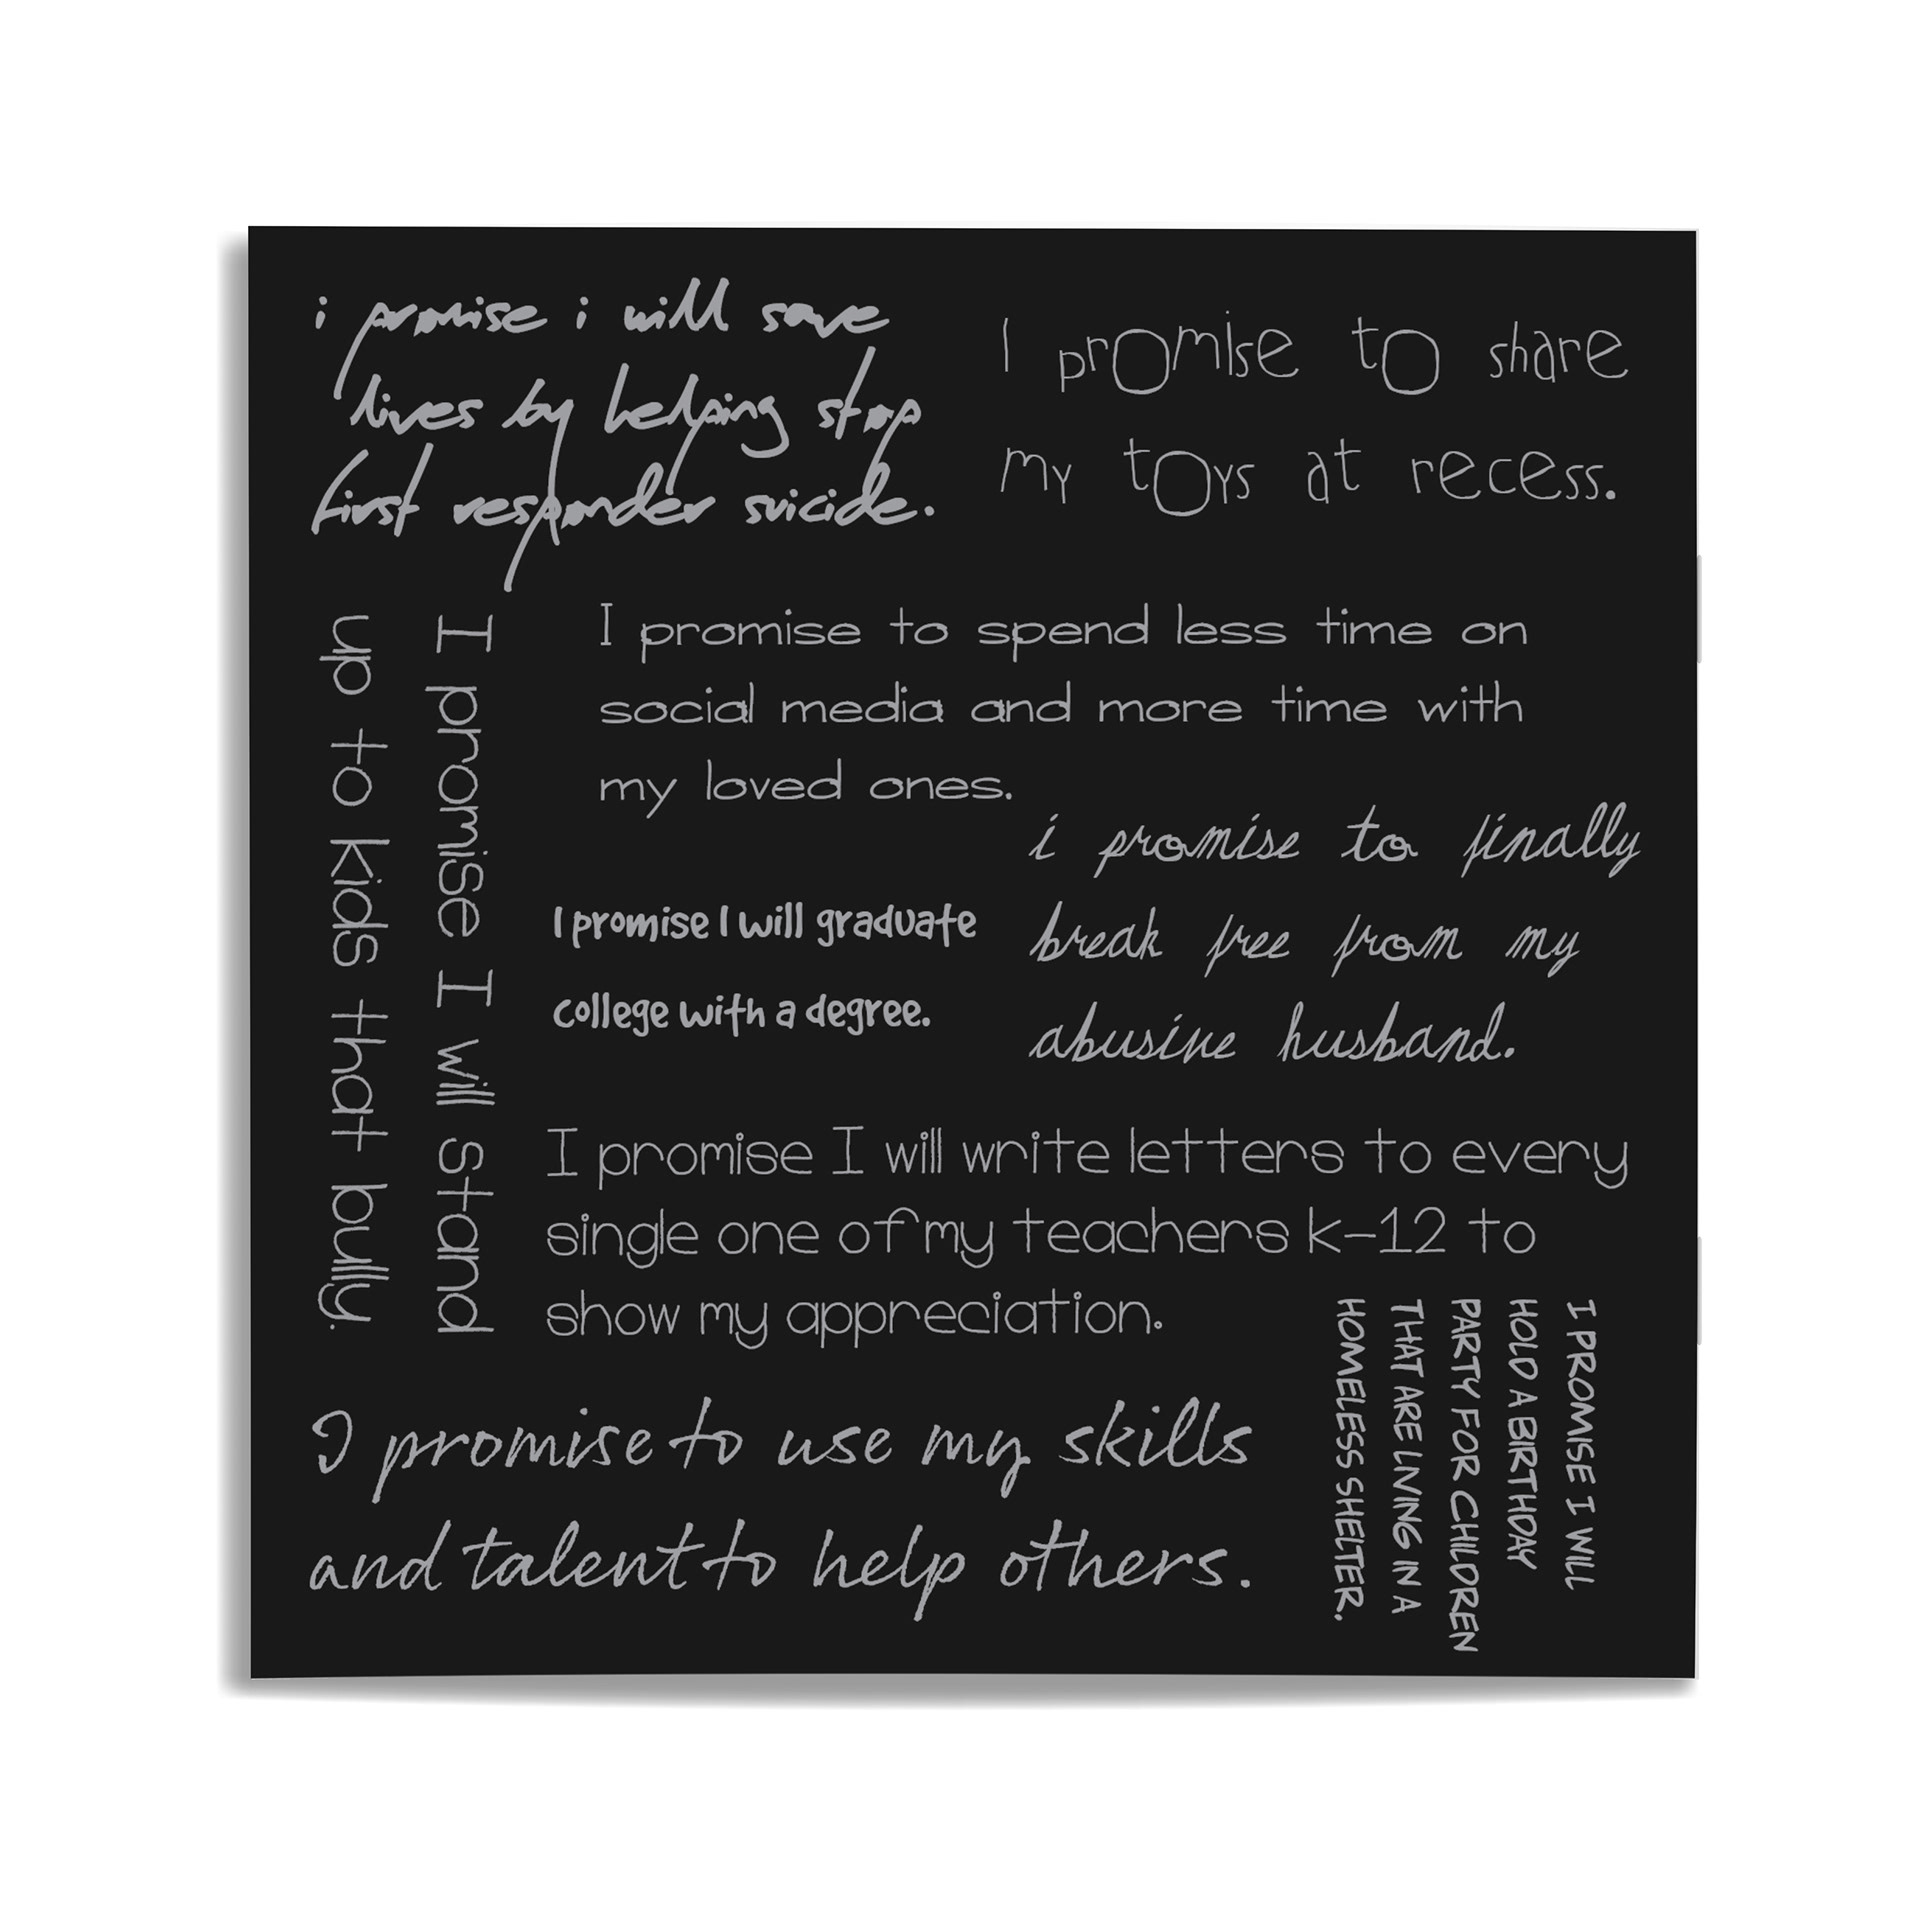 i promise i will save
lives by helping stop
first responder suicide.
I promise to share
my toys at recess.
I promise I will stand
up to kids that bully.
I promise to spend less time on
social media and more time with
my loved ones.
I promise I will graduate
college with a degree.
i promise to finally
break free from my
abusive husband.
I promise I will write letters to every
single one of my teachers k-12 to
show my appreciation.
I promise to use my skills
and talent to help others.
I PROMISE I WILL
HOLD A BIRTHDAY
PARTY FOR CHILDREN
THAT ARE LIVING IN A
HOMELESS SHELTER.